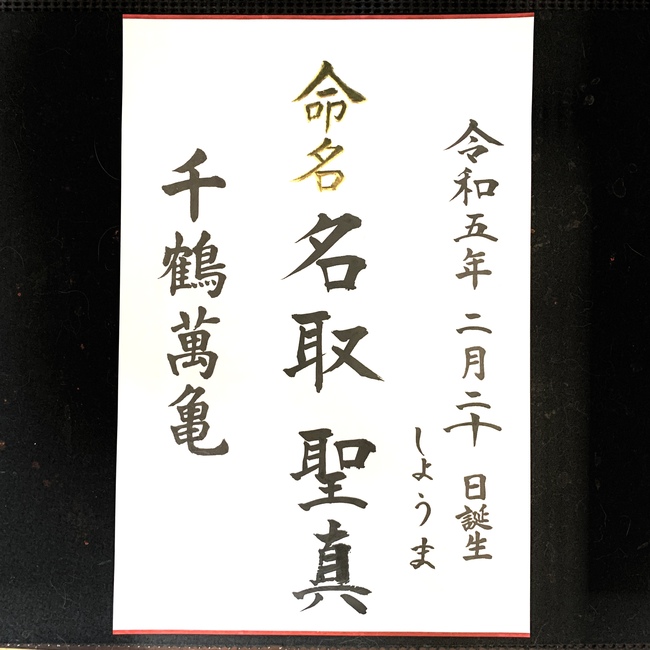 令和五年 二月二十日誕生
しょうま
命名 名取 聖真
千鶴萬亀